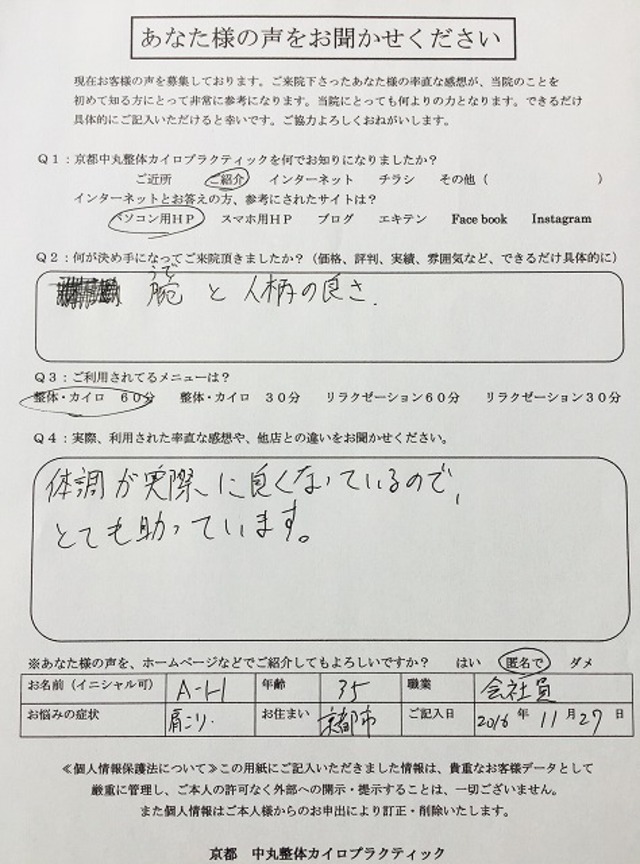 あなた様の声をお聞かせください
現在お客様の声を募集しております。ご来院下さったあなた様の率直な感想が、当院のことを
初めて知る方にとって非常に参考になります。当院にとっても何よりの力となります。できるだけ
具体的にご記入いただけると幸いです。ご協力よろしくおねがいします。
Q1：京都中丸整体カイロプラクティックを何でお知りになりましたか？
ご近所 ご紹介 インターネット チラシ その他（ ）
インターネットとお答えの方、参考にされたサイトは？
パソコン用HP スマホ用HP ブログ エキテン Face book Instagram
Q2：何が決め手になってご来院頂きましたか？（価格、評判、実績、雰囲気など、できるだけ具体的に）
うで
腕 と 人柄の良さ.
Q3：ご利用されてるメニューは？
整体・カイロ 60分 整体・カイロ 30分 リラクゼーション60分 リラクゼーション30分
Q4：実際、利用された率直な感想や、他店との違いをお聞かせください。
体調が実際に良くなっているので、
とても助っています。
※あなた様の声を、ホームページなどでご紹介してもよろしいですか？ はい 匿名で ダメ
お名前（イニシャル可） A-H 年齢 35 職業 会社員
お悩みの症状 肩こり. お住まい 京都市 ご記入日 2016 年 11 月 27 日
≪個人情報保護法について≫この用紙にご記入いただきました情報は、貴重なお客様データとして
厳重に管理し、ご本人の許可なく外部への開示・提示することは、一切ございません。
また個人情報はご本人様からのお申出により訂正・削除いたします。
京都 中丸整体カイロプラクティック